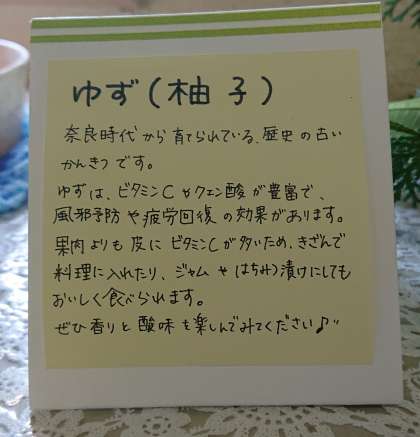 ゆず(柚子)
奈良時代から育てられている、歴史の古い
かんきつです。
ゆずは、ビタミンCやクエン酸が豊富で、
風邪予防や疲労回復の効果があります。
果肉よりも皮にビタミンCが多いため、きざんで
料理に入れたり、ジャムやはちみつ漬けにしても
おいしく食べられます。
ぜひ香りと酸味を楽しんでみてください♪"